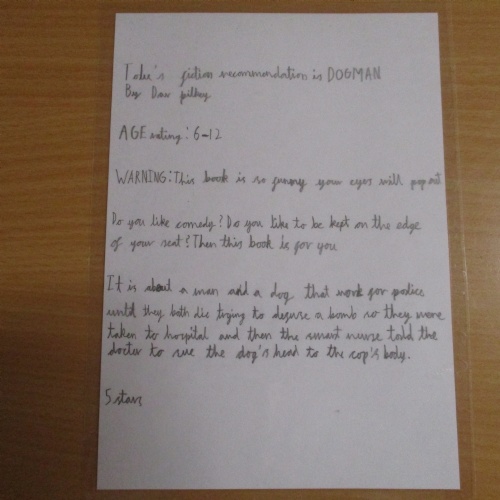 Tobie's fiction recommendation is DOGMAN
By Dav pilkey
AGE rating: 6-12
WARNING: This book is so funny your eyes will pop out
Do you like comedy? Do you like to be kept on the edge
of your seat? Then this book is for you
It is about a man and a dog that work for police
until they both die trying to defuse a bomb so they were
taken to hospital and then the smart nurse told the
docter to sue the dog's head to the cop's body.
5 stars